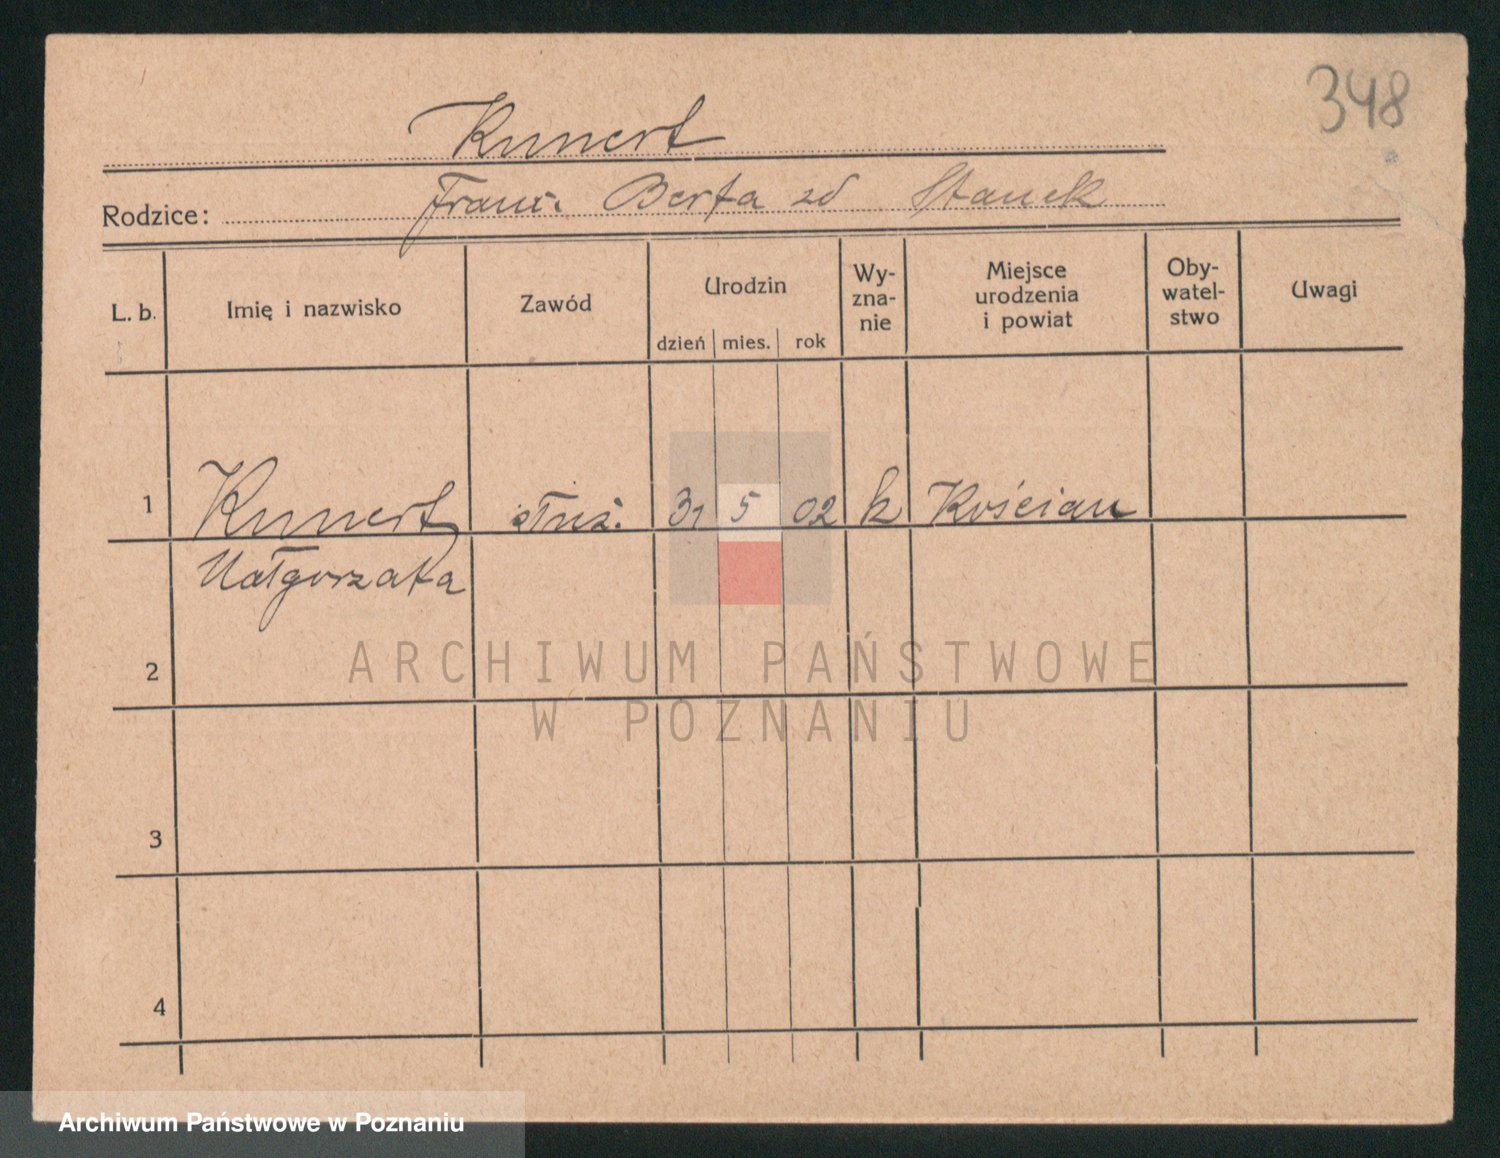 348
Kunert
Rodzice: Franc. Berta zd Stanek
L. b. Imię i nazwisko Zawód Urodzin dzień mies. rok Wy-zna-nie Miejsce urodzenia i powiat Oby-watel-stwo Uwagi
1 Kunert służ. 31 5 02 k Kościan
Małgorzata
2
ARCHIWUM PAŃSTWOWE
W POZNANIU
3
4
Archiwum Państwowe w Poznaniu